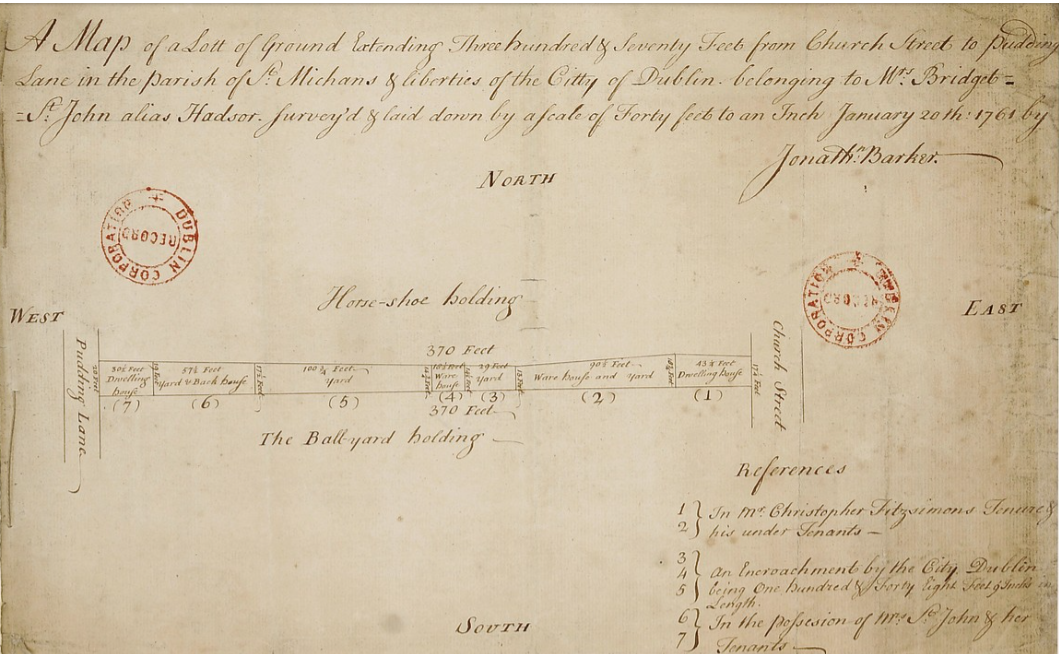 A Map of a Lott of Ground Extending Three hundred & Seventy Feet from Church Street to Pudding
Lane in the Parish of St. Michans & liberties of the Citty of Dublin. belonging to Mrs. Bridget =
= St. John alias Hadsor. Survey'd & laid down by a scale of Forty feet to an Inch January 20th: 1761 by
Jonathn. Barker.
NORTH
DUBLIN CORPORATION
RECORD
DUBLIN CORPORATION
RECORD
Horse-shoe holding
WEST
EAST
Pudding Lane
Church Street
370 Feet
30½ Feet Dwelling house
57½ Feet Yard & Back house
17½ Feet
100¾ Feet Yard
Ware house
29 Feet Yard
90½ Feet Ware house and Yard
43¼ Feet Dwelling house
(7) (6) (5) (4) (3) (2) (1)
370 Feet
The Ball-yard holding
References
1
2 } In Mr. Christopher Fitzsimons Tenure &
his under Tenants
3
4
5 } An Encroachment by the City Dublin
being One hundred & Forty Eight Feet 9 Inches in
Length.
6
7 } In the possesion of Mrs. St. John & her
Tenants
SOUTH